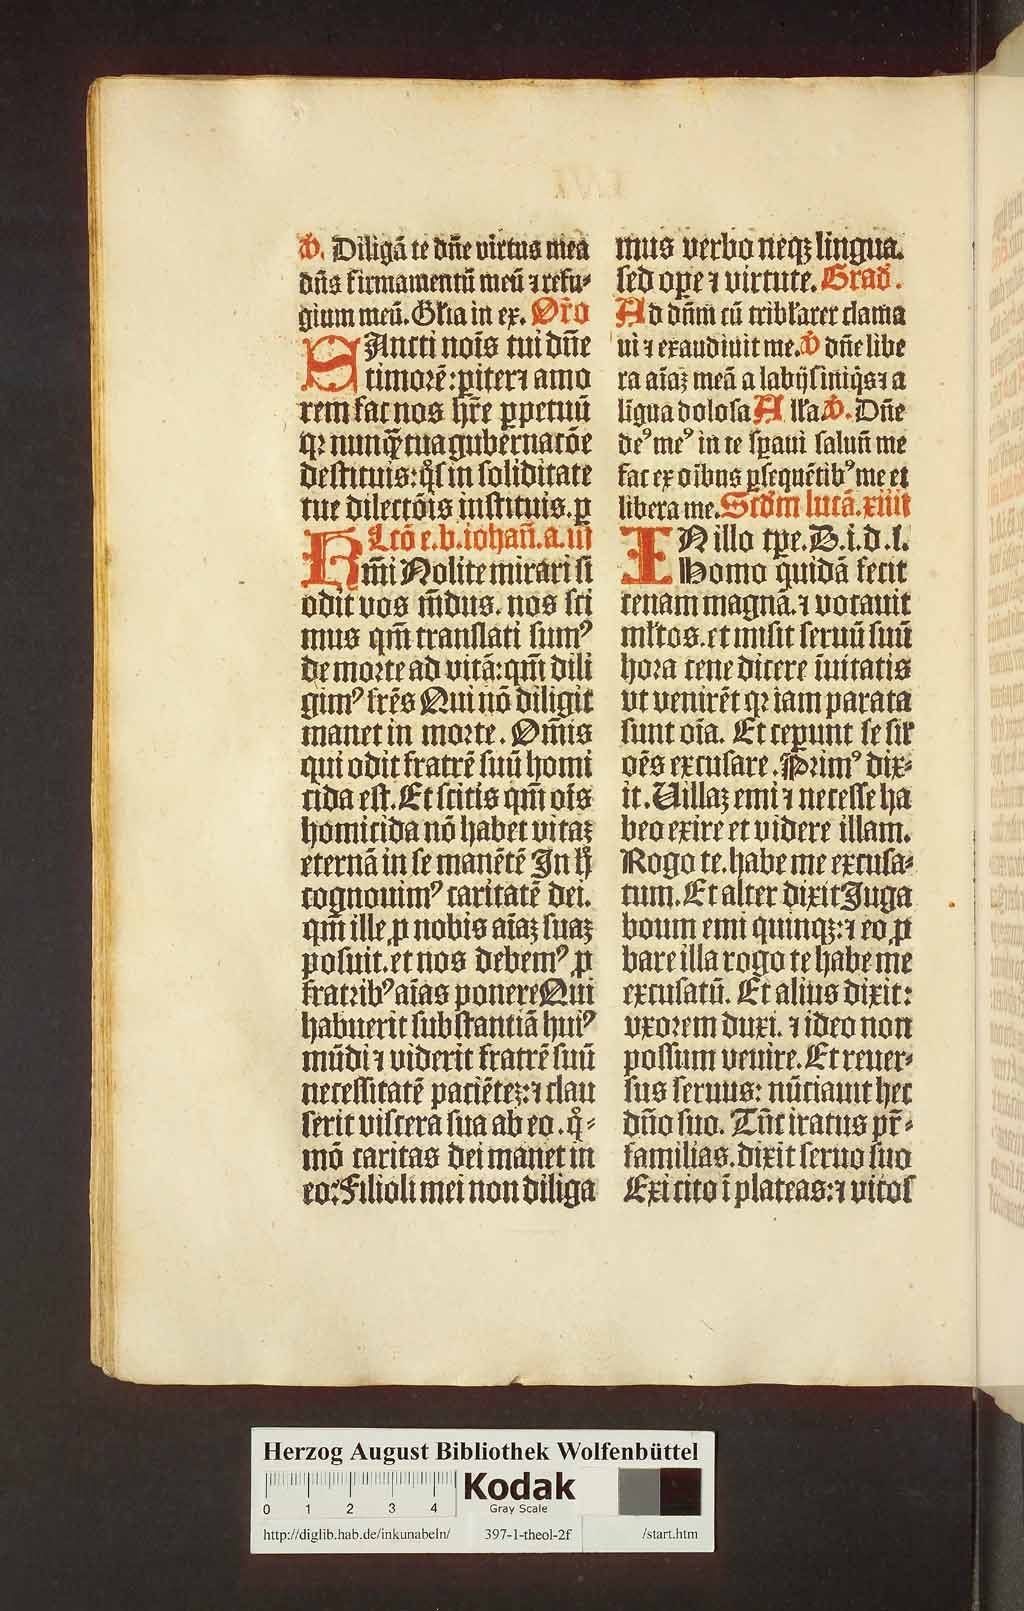 V̄. Diligā te dn̄e virtus mea
dn̄s firmamentū meū ⁊ refu-
gium meū. Gl̄ia in ex. Or̄o
SAncti noīs tui dn̄e
timorē: p̲iter⁊ amo
rem fac nos hr̄e p̲petuū
qꝛ nunq̄ꝫ tua gubernacōe
destituis: q̊s in soliditate
tue dilectōis instituis. p̲
Lcō e. b. iohan̄. a. iij
Kr̄mi Nolite mirari si
odit vos m̄dus. nos sci
mus qm̄ translati sumꝰ
de morte ad vitā: qm̄ dili
gimꝰ frēs Qui nō diligit
manet in morte. Om̄is
qui odit fratrē suū homi
cida est. Et scitis qm̄ oīs
homicida nō habet vitaꝫ
eternā in se manētē In h̊
cognouimꝰ caritatē dei.
qm̄ ille ꝓ nobis aīaꝫ suaꝫ
posuit. et nos debemꝰ ꝓ
fratribꝰ aīas ponere Qui
habuerit substantiā huiꝰ
mūdi ⁊ viderit fratrē suū
necessitatē paciēteꝫ: ⁊ clau
serit viscera sua ab eo. q̊-
mō caritas dei manet in
eo: Filioli mei non diliga
mus verbo neqꝫ lingua.
sed ope ⁊ virtute. Grad̄.
Ad dn̄m cū tribl̄arer clama
ui ⁊ exaudiuit me. V̄ dn̄e libe
ra aīaꝫ meā a labijs iniq̇s ⁊ a
ligua dolosa All̄a V̄. Dn̄e
deꝰ meꝰ in te sp̲aui saluū me
fac ex oībus p̲sequētibꝰ me et
libera me. Scd̄m lucā. xiiij
IN illo tp̄e. D. i. d. l.
Homo quidā fecit
cenam magnā. ⁊ vocauit
ml̄tos. et misit seruū suū
hora cene dicere īuitatis
vt venirēt qꝛ iam parata
sunt oīa. Et cep̲unt se sil̄
oēs excusare. Primꝰ dix-
it. Uillaꝫ emi ⁊ necesse ha
beo exire et videre illam.
Rogo te. habe me excusa-
tum. Et alter dixit Juga
boum emi quinqꝫ: ⁊ eo ꝓ
bare illa rogo te habe me
excusatū. Et alius dixit:
vxorem duxi. ⁊ ideo non
possum venire. Et reuer-
sus seruus: nūciauit hec
dn̄o suo. Tūc iratus pr̄-
familias. dixit seruo suo
Exi cito ī plateas: ⁊ vicos
Herzog August Bibliothek Wolfenbüttel
0 1 2 3 4
Kodak
Gray Scale
http://diglib.hab.de/inkunabeln/ 397-1-theol-2f /start.htm